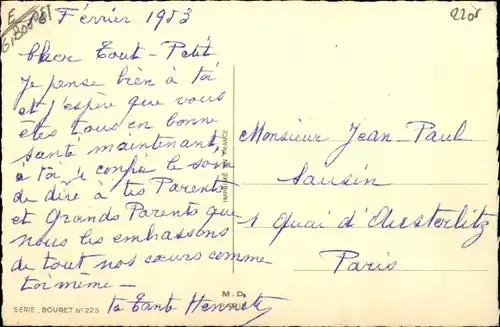 Février 1953
2205
Cher Tout-Petit
Je pense bien à toi
et j'espère que vous
êtes tous en bonne
santé maintenant,
à toi je confie le soin
de dire à tes Parents
et Grands Parents que
nous les embrassons
de tout nos cœurs comme
toi même —
ta Tante
Monsieur Jean-Paul
1 Quai d'Austerlitz
Paris
IMPRIMÉ FRANCE
M.D.
PARIS
SÉRIE . BOURET N° 225